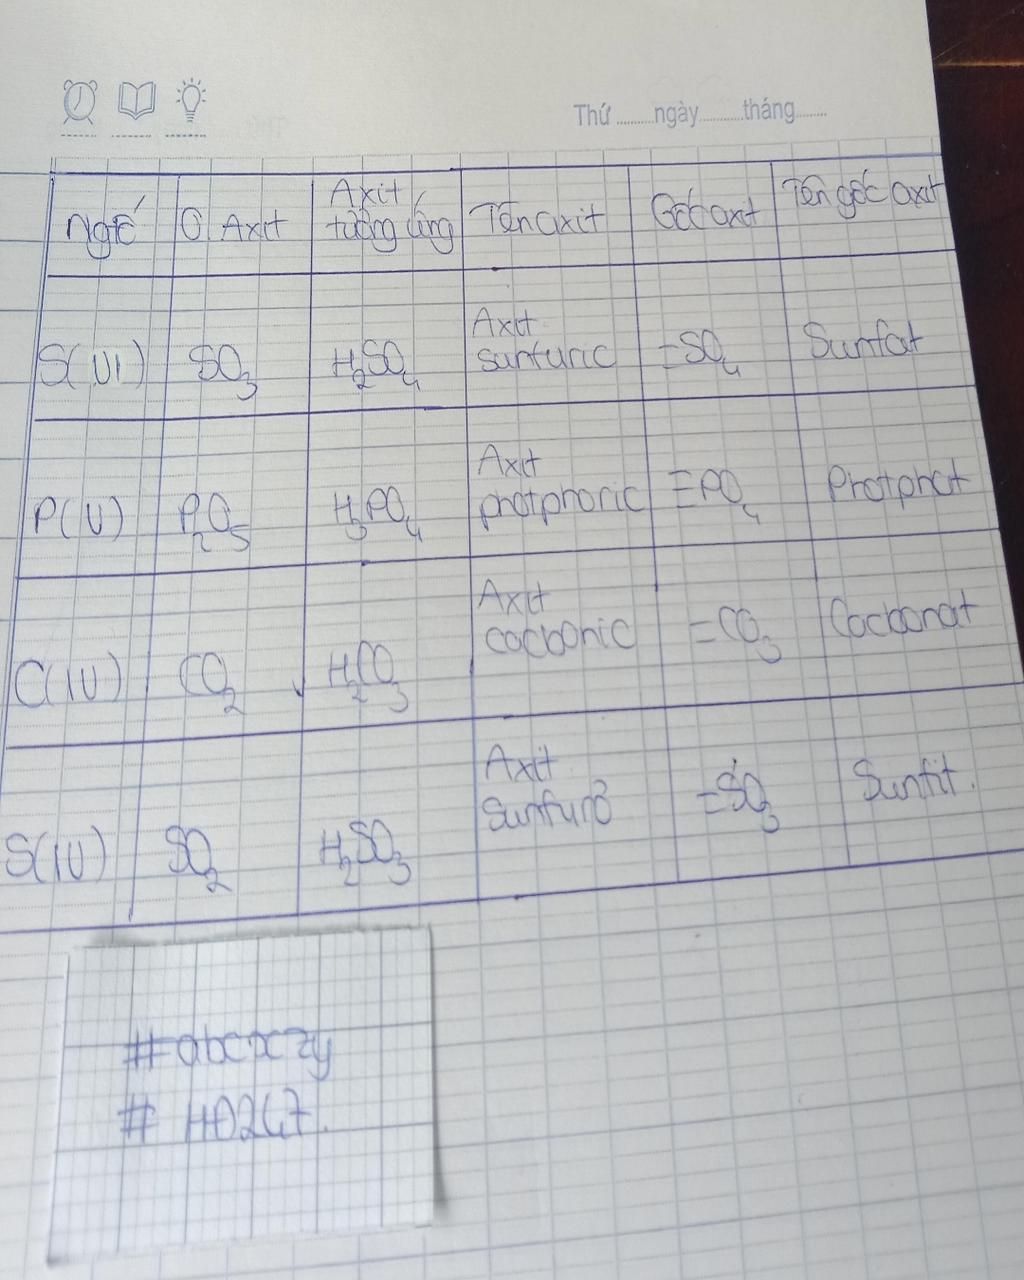 Thứ ........ngày..........tháng.......
Ngtố O Axit Axit tương ứng Tên axit Gốc axit Tên gốc axit
S(VI) SO₃ H₂SO₄ Axit sunfuric =SO₄ Sunfat
P(V) P₂O₅ H₃PO₄ Axit photphoric ≡PO₄ Photphat
C(IV) CO₂ H₂CO₃ Axit cacbonic =CO₃ Cacbonat
S(IV) SO₂ H₂SO₃ Axit sunfurơ =SO₃ Sunfit.
#abcxzy
# HD247.